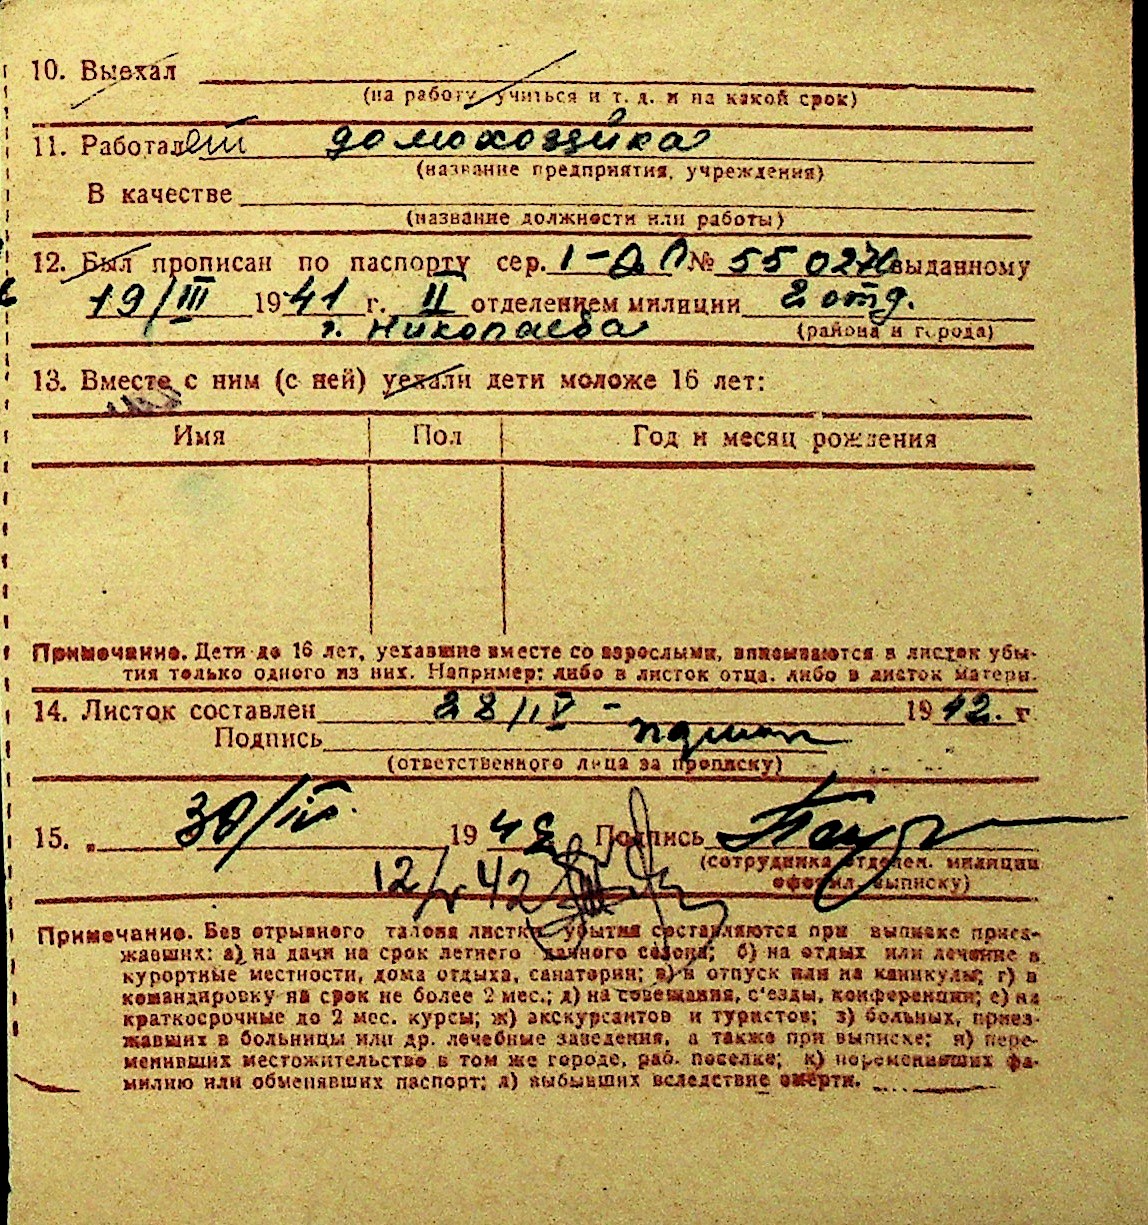 10. Выехал
(на работу, учиться и т. д. и на какой срок)
11. Работал домохозяйка
(название предприятия, учреждения)
В качестве
(название должности или работы)
12. Был прописан по паспорту сер. № выданному
19/III 1941 г. II отделением милиции 2 отд.
г. Николаева (района и города)
13. Вместе с ним (с ней) уехали дети моложе 16 лет:
Имя Пол Год и месяц рождения
Примечание. Дети до 16 лет, уехавшие вместе со взрослыми, вписываются в листок убы-
тия только одного из них. Например: либо в листок отца, либо в листок матери.
14. Листок составлен 28/IV - 1942. г
Подпись
(ответственного лица за прописку)
15. „ 30/IV. 1942 Подпись
(сотрудника отделен. милиции
12/V 42
оформл. выписку)
Примечание. Без отрывного талона листки убытия составляются при выписке приез-
жавших: а) на дачи на срок летнего дачного сезона; б) на отдых или лечение в
курортные местности, дома отдыха, санатории; в) в отпуск или на каникулы; г) в
командировку на срок не более 2 мес.; д) на совещания, с'езды, конференции; е) на
краткосрочные до 2 мес. курсы; ж) экскурсантов и туристов; з) больных, приез-
жавших в больницы или др. лечебные заведения, а также при выписке; и) пере-
менивших местожительство в том же городе, раб. поселке; к) переменивших фа-
милию или обменявших паспорт; л) выбывших вследствие смерти.